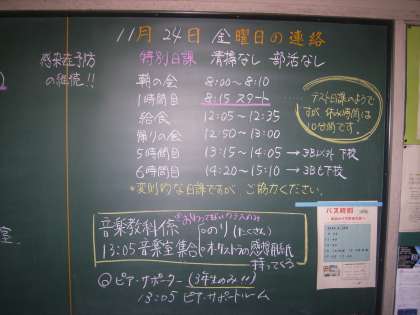 11月24日 金曜日の連絡
感染症予防
の継続!!
特別日課 清掃なし 部活なし
朝の会 8:00〜8:10
1時間目 8:15スタート
テスト日課のようで
すが休み時間は
10分間です。
給食 12:05〜12:35
帰りの会 12:50〜13:00
5時間目 13:15〜14:05→3B以外下校
6時間目 14:20〜15:10→3Bも下校
*変則的な日課ですが、ご協力ください。
音楽教科係
のり(たくさん)
13:05音楽室集合
オーケストラの感想用紙
持ってくる
◎ピア・サポーター(3年生のみ!!)
13:05 ピア・サポートルーム
バス時刻
室